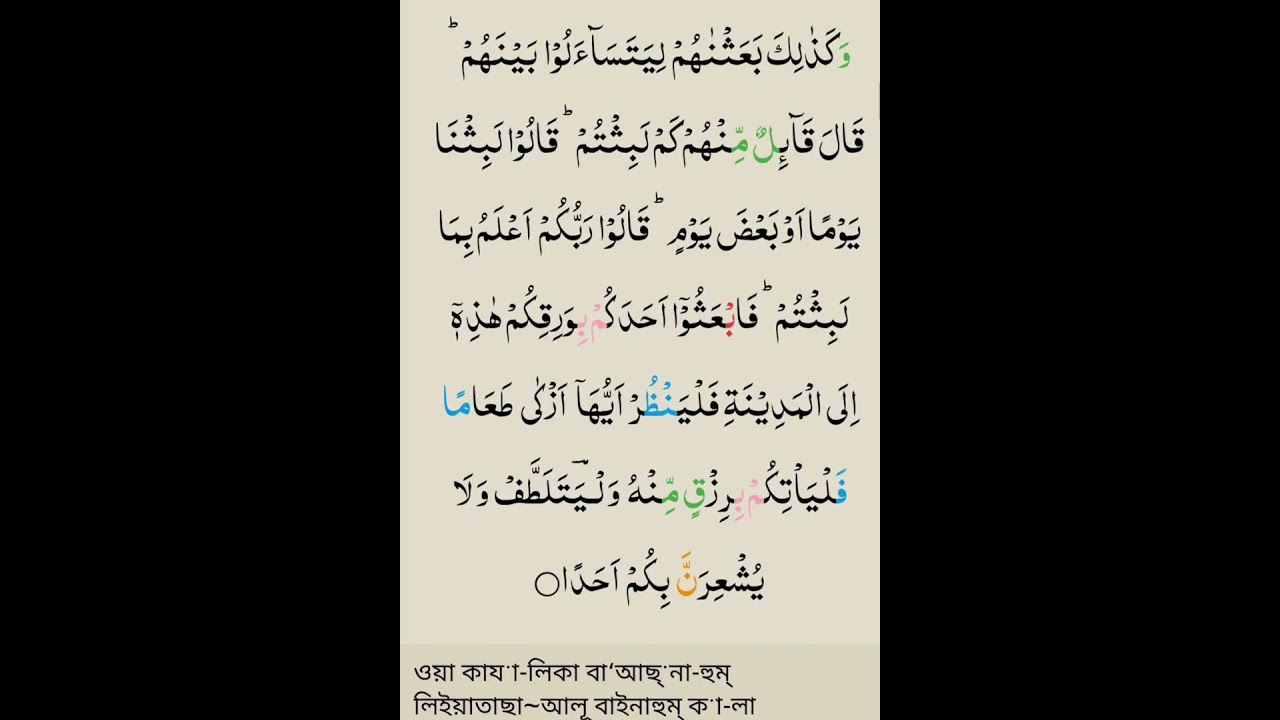 وَكَذٰلِكَ بَعَثْنٰهُمْ لِيَتَسَآءَلُوْا بَيْنَهُمْ ؕ
قَالَ قَآئِلٌ مِّنْهُمْ كَمْ لَبِثْتُمْ ؕ قَالُوْا لَبِثْنَا
يَوْمًا اَوْ بَعْضَ يَوْمٍ ؕ قَالُوْا رَبُّكُمْ اَعْلَمُ بِمَا
لَبِثْتُمْ ؕ فَابْعَثُوْۤا اَحَدَكُمْ بِوَرِقِكُمْ هٰذِهٖۤ
اِلَى الْمَدِيْنَةِ فَلْيَنْظُرْ اَيُّهَاۤ اَزْكٰى طَعَامًا
فَلْيَاْتِكُمْ بِرِزْقٍ مِّنْهُ وَلْيَتَلَطَّفْ وَلَا
يُشْعِرَنَّ بِكُمْ اَحَدًا○
ওয়া কাযˑা-লিকা বা‘আছ্ˑনা-হুম্
লিইয়াতাছা~আলূ বাইনাহুম্ কˑা-লা